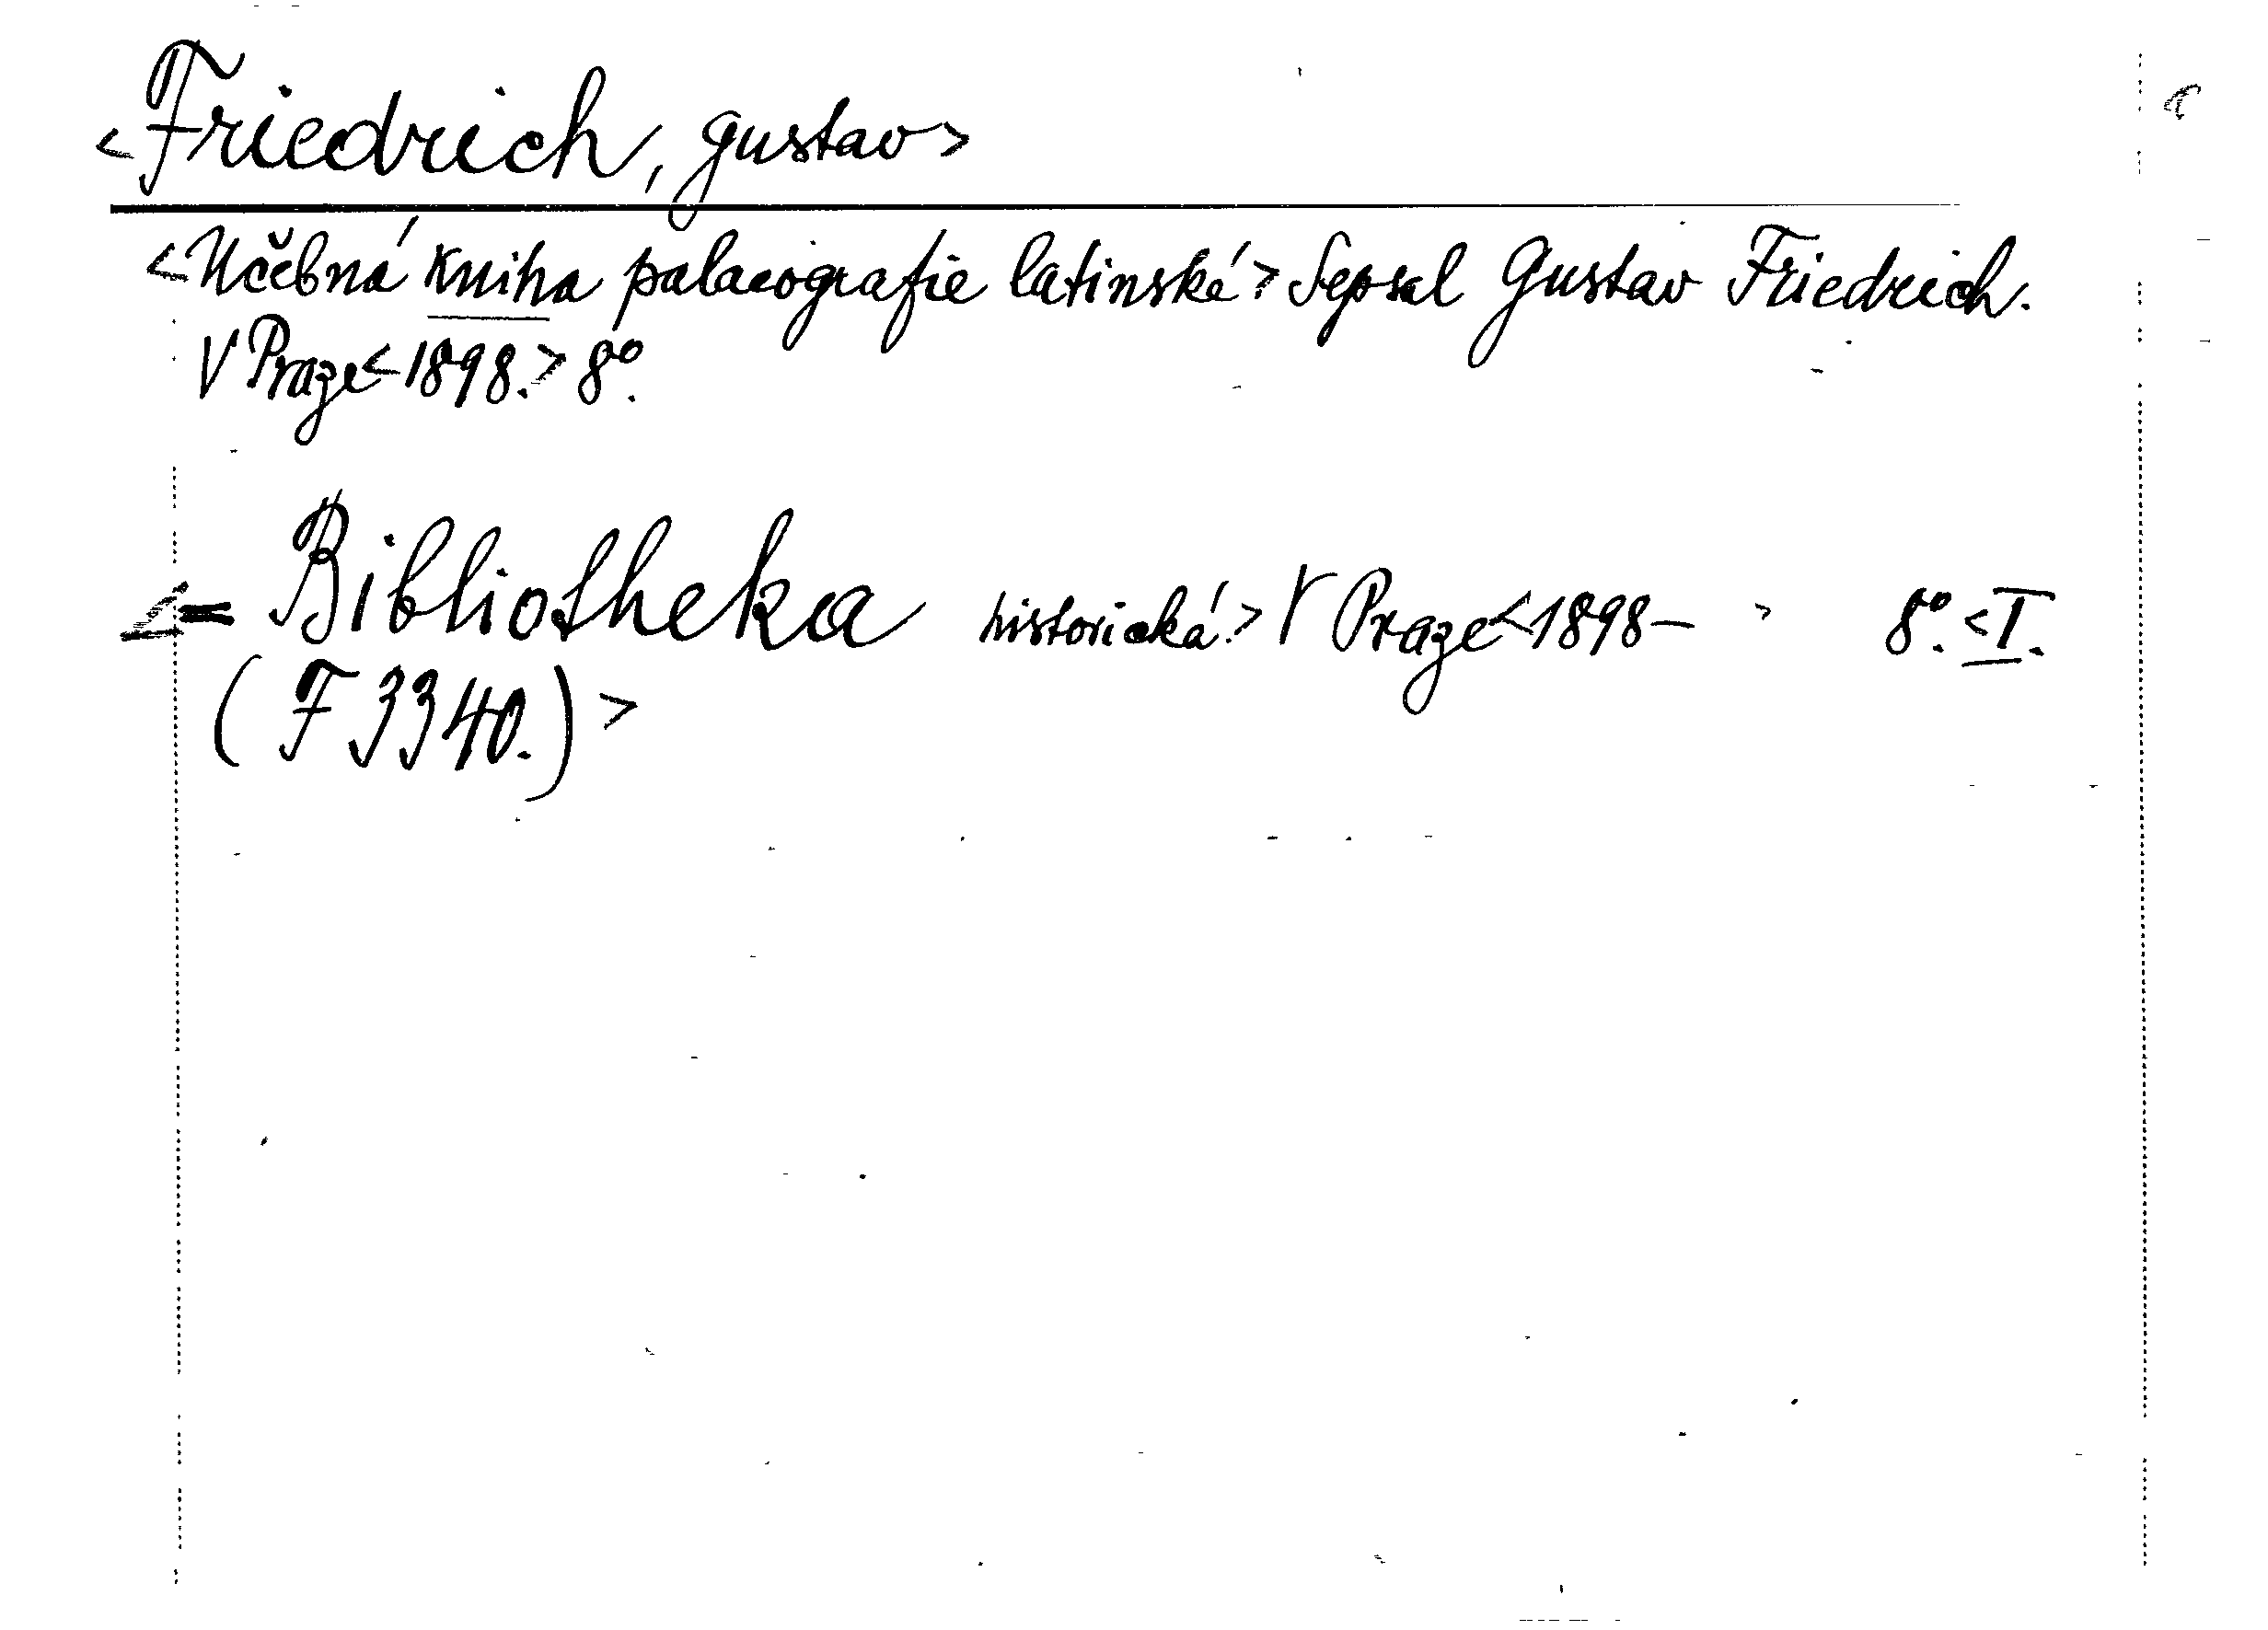 <Friedrich, Gustav>
<Učebná kniha palaeografie latinské> Sepsal Gustav Friedrich.
V Praze <1898.> 8°.
<= Bibliotheka historická.> V Praze <1898— > 8°. <I.
(F 3340.)>